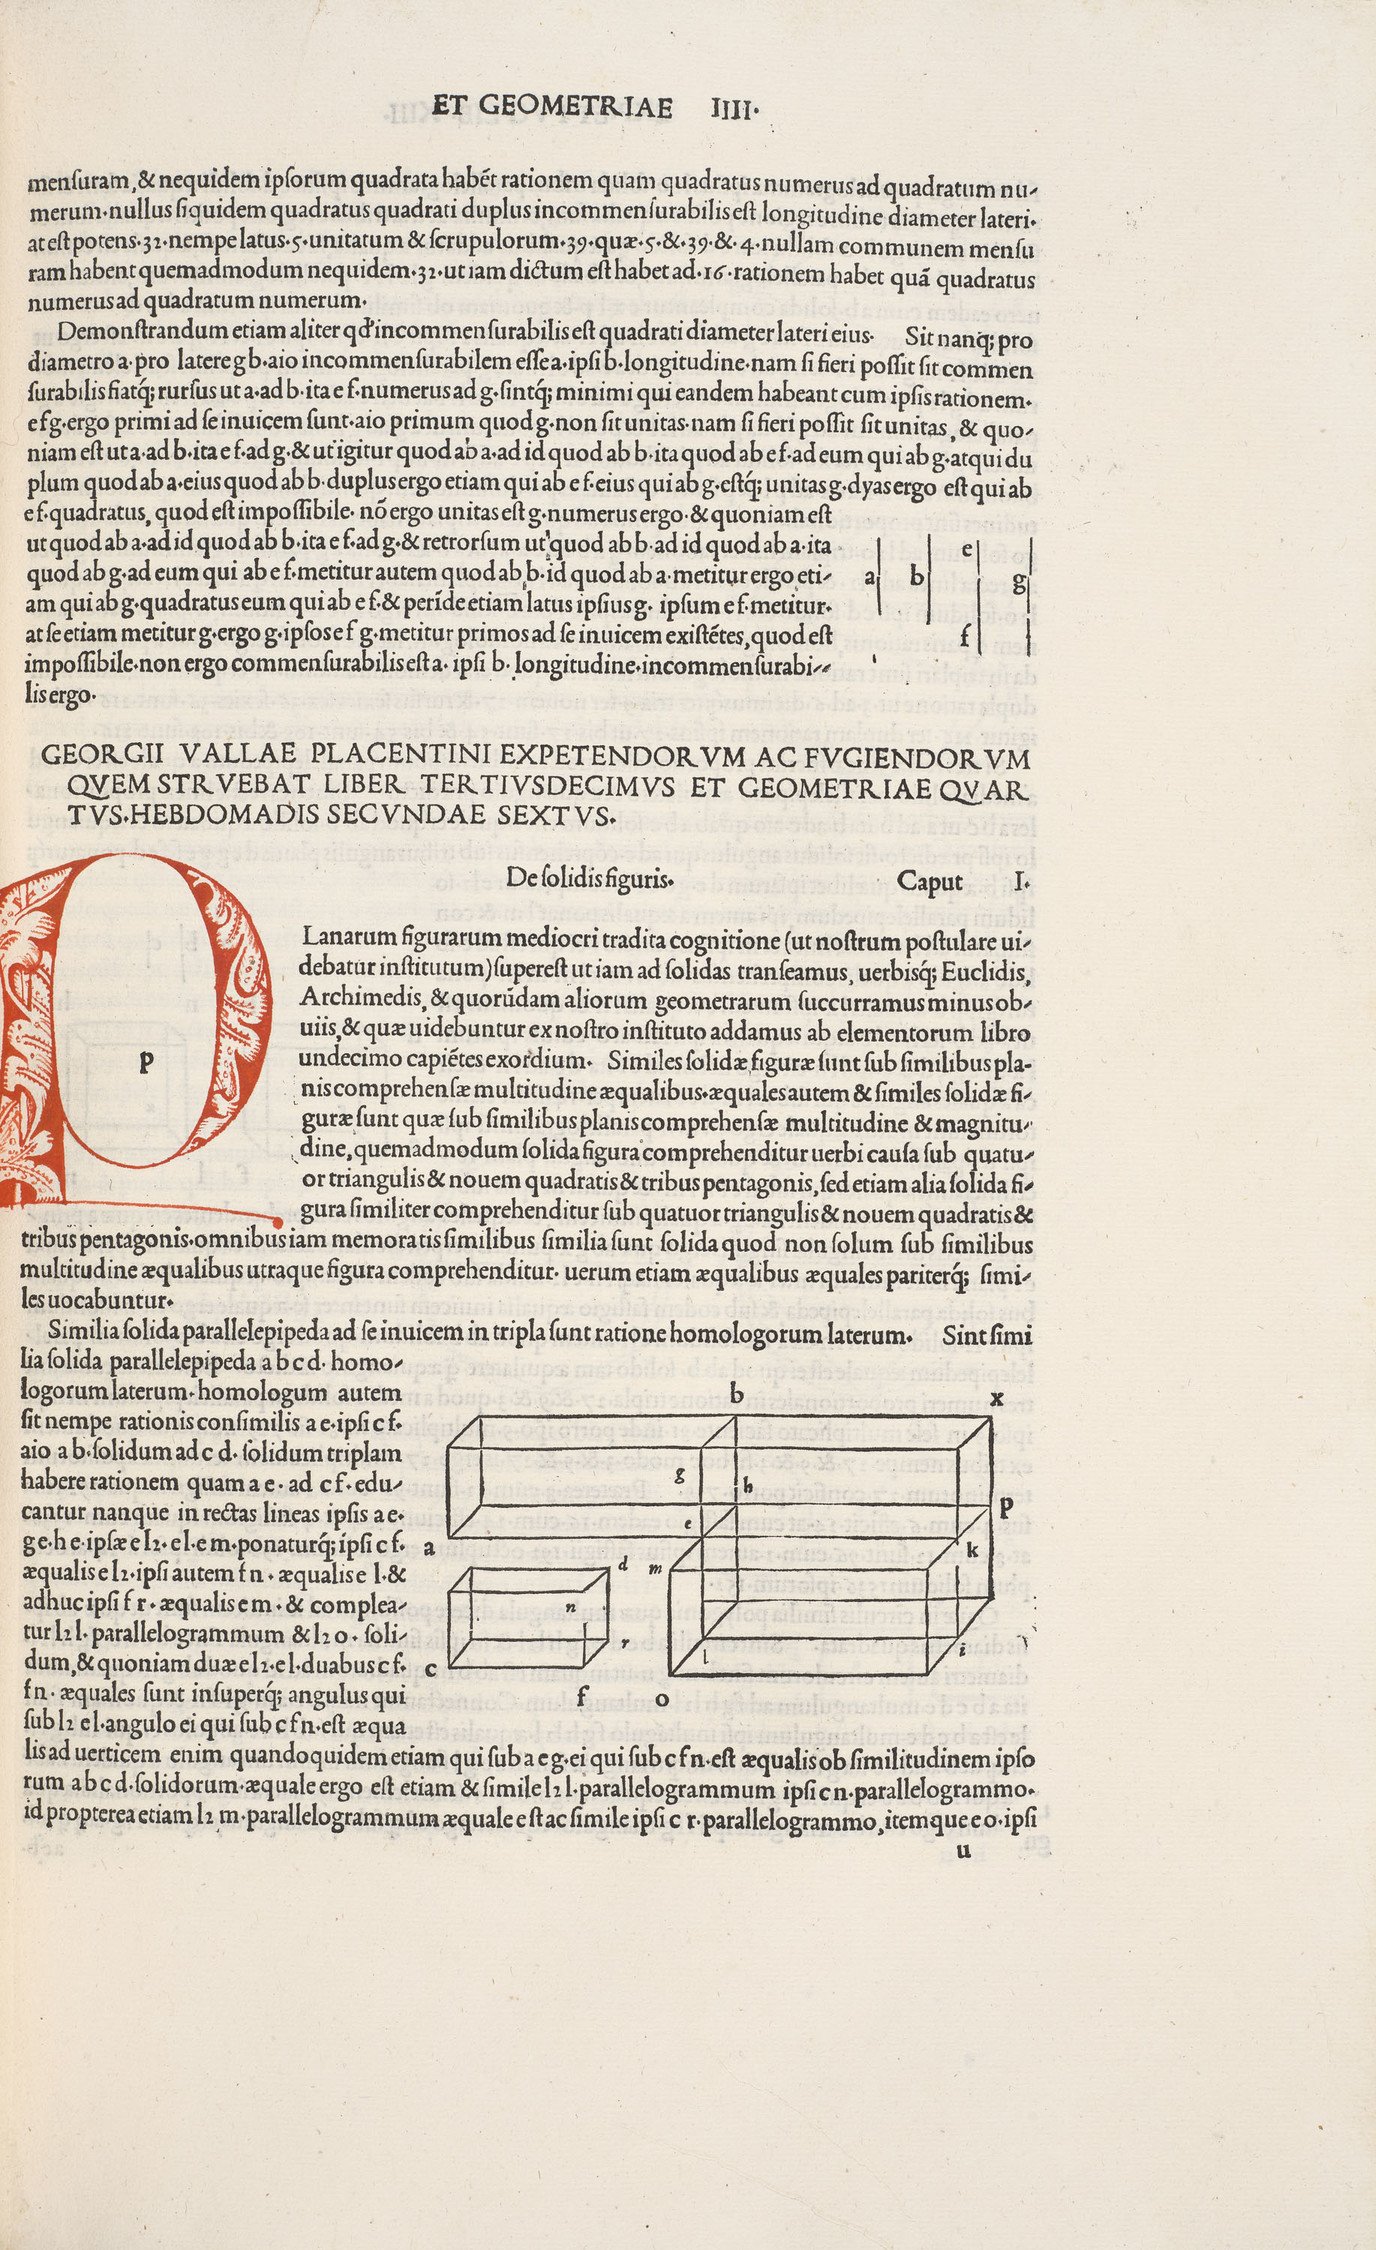 ET GEOMETRIAE IIII·
menſuram,& nequidem ipſorum quadrata habēt rationem quam quadratus numerus ad quadratum nu-
merum·nullus ſiquidem quadratus quadrati duplus incommenſurabilis eſt longitudine diameter lateri·
at eſt potens·32·nempe latus·5·unitatum & ſcrupulorum·39·quæ·5·&·39·&·4·nullam communem menſu
ram habent quemadmodum nequidem·32·ut iam dictum eſt habet ad·16·rationem habet quā quadratus
numerus ad quadratum numerum·
Demonſtrandum etiam aliter qd' incommenſurabilis eſt quadrati diameter lateri eius· Sit nanq; pro
diametro a·pro latere g b·aio incommenſurabilem eſſe a·ipſi b·longitudine·nam ſi fieri poſſit ſit commen
ſurabilis fiatq; rurſus ut a·ad b·ita e f·numerus ad g·ſintq; minimi qui eandem habeant cum ipſis rationem·
e f g·ergo primi ad ſe inuicem ſunt·aio primum quod g·non ſit unitas·nam ſi fieri poſſit ſit unitas, & quo-
niam eſt ut a·ad b·ita e f·ad g·& ut igitur quod ab a·ad id quod ab b·ita quod ab e f·ad eum qui ab g·atqui du
plum quod ab a·eius quod ab b·duplus ergo etiam qui ab e f·eius qui ab g·eſtq; unitas g·dyas ergo eſt qui ab
e f·quadratus, quod eſt impoſſibile· nō ergo unitas eſt g·numerus ergo·& quoniam eſt
ut quod ab a·ad id quod ab b·ita e f·ad g·& retrorſum ut quod ab b·ad id quod ab a·ita
quod ab g·ad eum qui ab e f·metitur autem quod ab b·id quod ab a·metitur ergo eti-
am qui ab g·quadratus eum qui ab e f·& perīde etiam latus ipſius g· ipſum e f·metitur·
at ſe etiam metitur g·ergo g·ipſos e f g·metitur primos ad ſe inuicem exiſtētes,quod eſt
impoſſibile·non ergo commenſurabilis eſt a· ipſi b· longitudine·incommenſurabi-
lis ergo·
a b e f g
GEORGII VALLAE PLACENTINI EXPETENDORVM AC FVGIENDORVM
QVEM STRVEBAT LIBER TERTIVSDECIMVS ET GEOMETRIAE QVAR
TVS·HEBDOMADIS SECVNDAE SEXTVS·
De ſolidis figuris· Caput I·
p
Lanarum figurarum mediocri tradita cognitione (ut noſtrum poſtulare ui-
debatur inſtitutum) ſupereſt ut iam ad ſolidas tranſeamus, uerbiſq; Euclidis,
Archimedis, & quorūdam aliorum geometrarum ſuccurramus minus ob-
uiis,& quæ uidebuntur ex noſtro inſtituto addamus ab elementorum libro
undecimo capiētes exordium· Similes ſolidæ figuræ ſunt ſub ſimilibus pla-
nis comprehenſæ multitudine æqualibus·æquales autem & ſimiles ſolidæ fi-
guræ ſunt quæ ſub ſimilibus planis comprehenſæ multitudine & magnitu-
dine,quemadmodum ſolida figura comprehenditur uerbi cauſa ſub quatu-
or triangulis & nouem quadratis & tribus pentagonis,ſed etiam alia ſolida fi-
gura ſimiliter comprehenditur ſub quatuor triangulis & nouem quadratis &
tribus pentagonis·omnibus iam memoratis ſimilibus ſimilia ſunt ſolida quod non ſolum ſub ſimilibus
multitudine æqualibus utraque figura comprehenditur· uerum etiam æqualibus æquales pariterq; ſimi-
les uocabuntur·
Similia ſolida parallelepipeda ad ſe inuicem in tripla ſunt ratione homologorum laterum· Sint ſimi
lia ſolida parallelepipeda a b c d· homo-
logorum laterum·homologum autem
ſit nempe rationis conſimilis a e·ipſi c f·
aio a b·ſolidum ad c d·ſolidum triplam
habere rationem quam a e· ad c f·edu-
cantur nanque in rectas lineas ipſis a e·
g e·h e·ipſæ e h·e l·e m·ponaturq; ipſi c f·
æqualis e h·ipſi autem f n·æqualis e l·&
adhuc ipſi f r·æqualis e m·& complea-
tur h l·parallelogrammum & h o·ſoli-
dum,& quoniam duæ e h·e l·duabus c f·
f n·æquales ſunt inſuperq; angulus qui
ſub h e l·angulo ei qui ſub c f n·eſt æqua
lis ad uerticem enim quandoquidem etiam qui ſub a e g·ei qui ſub c f n·eſt æqualis ob ſimilitudinem ipſo
rum a b c d·ſolidorum·æquale ergo eſt etiam & ſimile h l·parallelogrammum ipſi c n·parallelogrammo·
id propterea etiam h m·parallelogrammum æquale eſt ac ſimile ipſi c r·parallelogrammo,itemque e o·ipſi
b x
g h
p
e
a k
d m
n
r i
c l
f o
u